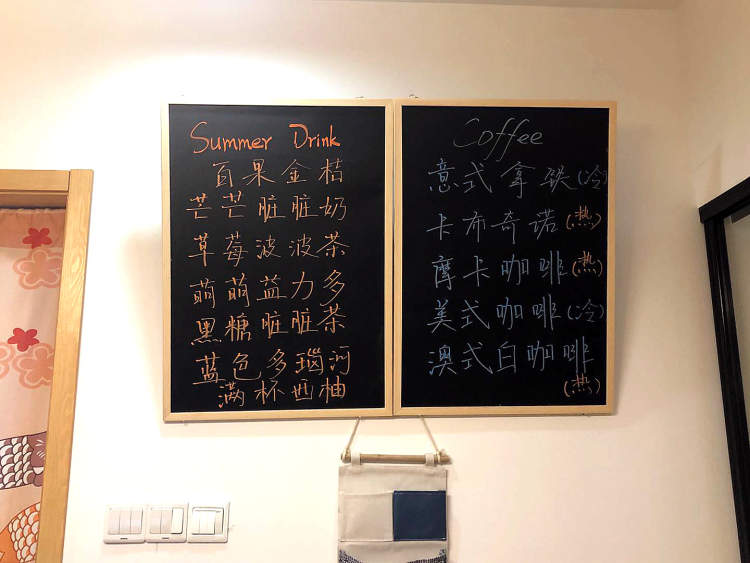 Summer Drink
百果金桔
芒芒脏脏奶
草莓波波茶
萌萌益力多
黑糖脏脏茶
蓝色多瑙河
满杯西柚
Coffee
意式拿铁(冷)
卡布奇诺(热)
摩卡咖啡(热)
美式咖啡(冷)
澳式白咖啡
(热)